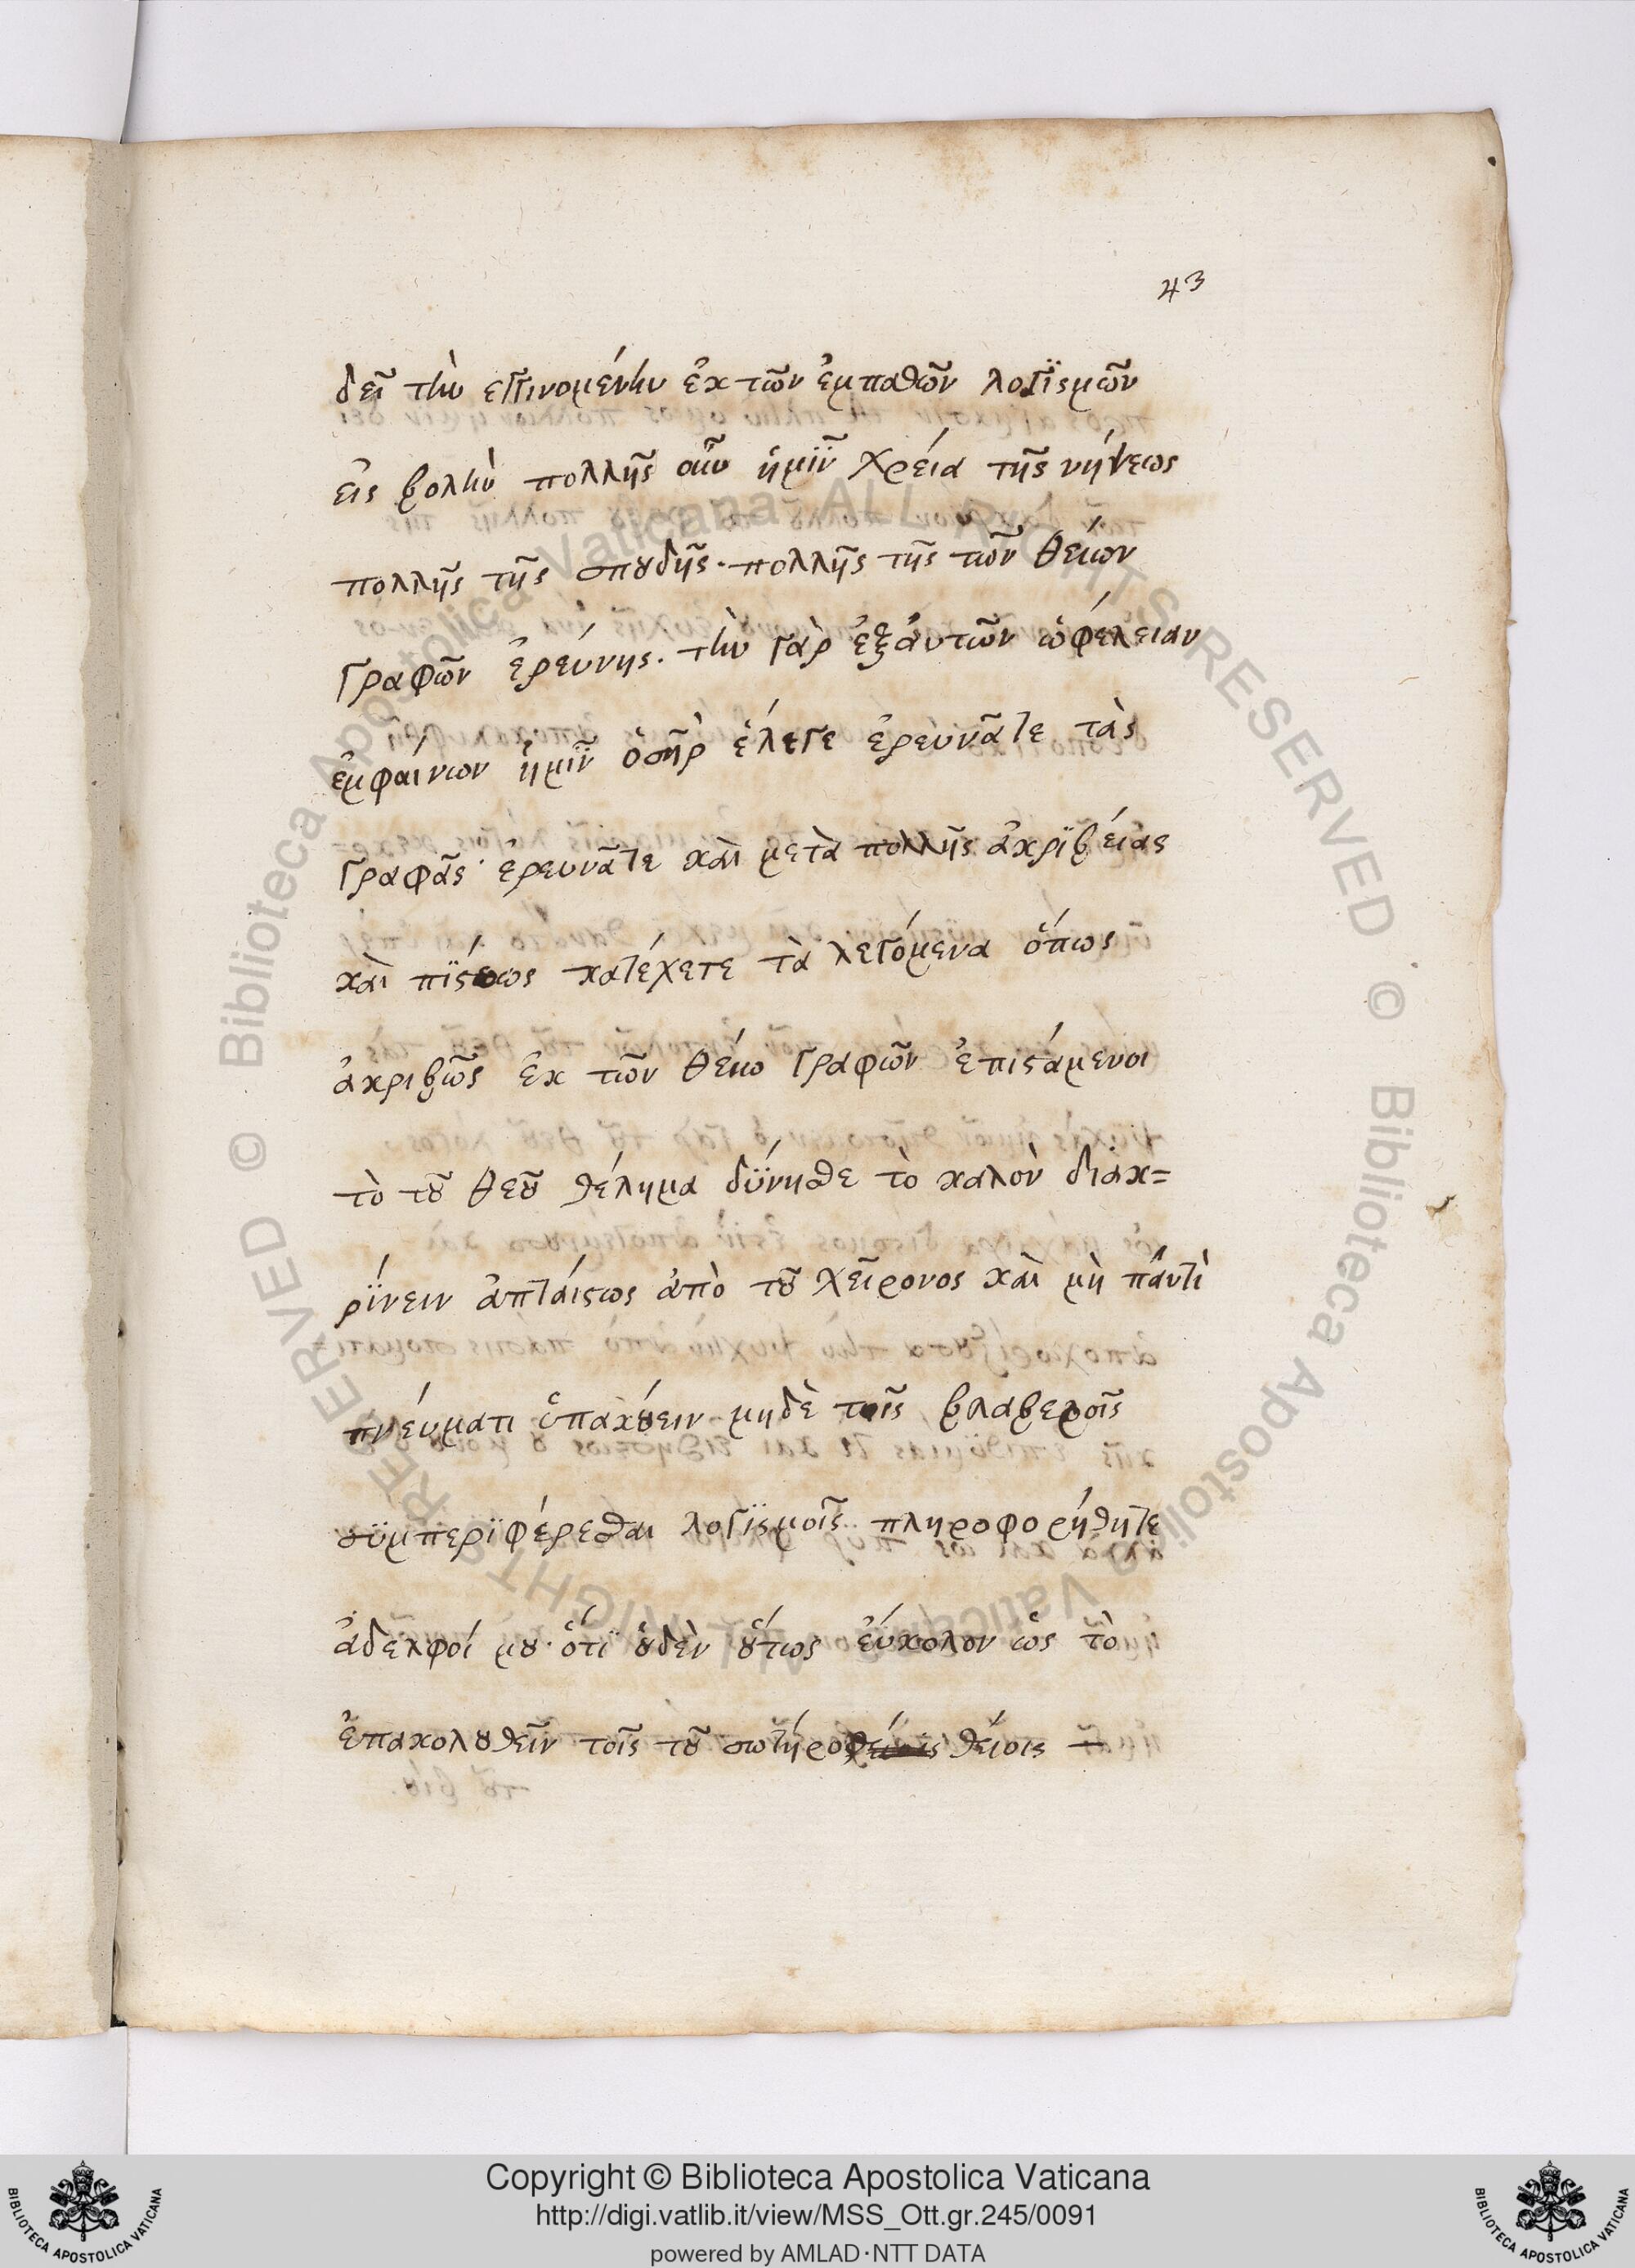 43
δεῖ τὴν ἐγγινομένην ἐκ τῶν ἐμπαθῶν λογϊσμῶν
εἰς βολὴν πολλῆς οὖν ἡμῖν χρεία τῆς νήψεως
πολλῆς τῆς σπȣδῆς· πολλῆς τῆς τῶν θείων
γραφῶν ἐρεύνης. τὴν γὰρ ἐξ ἀυτῶν ὠφέλειαν
ἐμφαίνων ἡμῖν ὁ σῆρ ἔλεγε ἐρευνᾶτε τὰς
γραφᾶς· ἐρευνᾶτε καὶ μετὰ πολλῆς ἀκρϊβείας
καὶ πίϛεως κατέχετε τὰ λεγόμενα ὅπως
ἀκριβῶς ἐκ τῶν θείω γραφῶν ἐπιϛάμενοι
τὸ τȣ͂ θεȣ͂ θέλημα δύνησθε τὸ καλὸν διακ=
ρίνειν ἀπταίϛως ἀπὸ τȣ͂ χεῖρονος καὶ μὴ πάντὶ
πνέυματι ὑπακȣ́ειν μηδὲ τοῖς βλαβεροῖς
σϋμπερϊφέρεσθαι λογϊσμοῖς.. πληροφορήθητε
ἀδελφοί μȣ· ὅτϊ ȣ̓δὲν ȣ̔́τως εύκολον ὡς τὸ
ἐπακολȣθεῖν τοῖς τȣ͂ σωτήρο θείοις
Copyright © Biblioteca Apostolica Vaticana
http://digi.vatlib.it/view/MSS_Ott.gr.245/0091
powered by AMLAD·NTT DATA
BIBLIOTECA APOSTOLICA VATICANA
BIBLIOTECA APOSTOLICA VATICANA
© Biblioteca Apostolica Vaticana ALL RIGHTS RESERVED
© Biblioteca Apostolica Vaticana ALL RIGHTS RESERVED